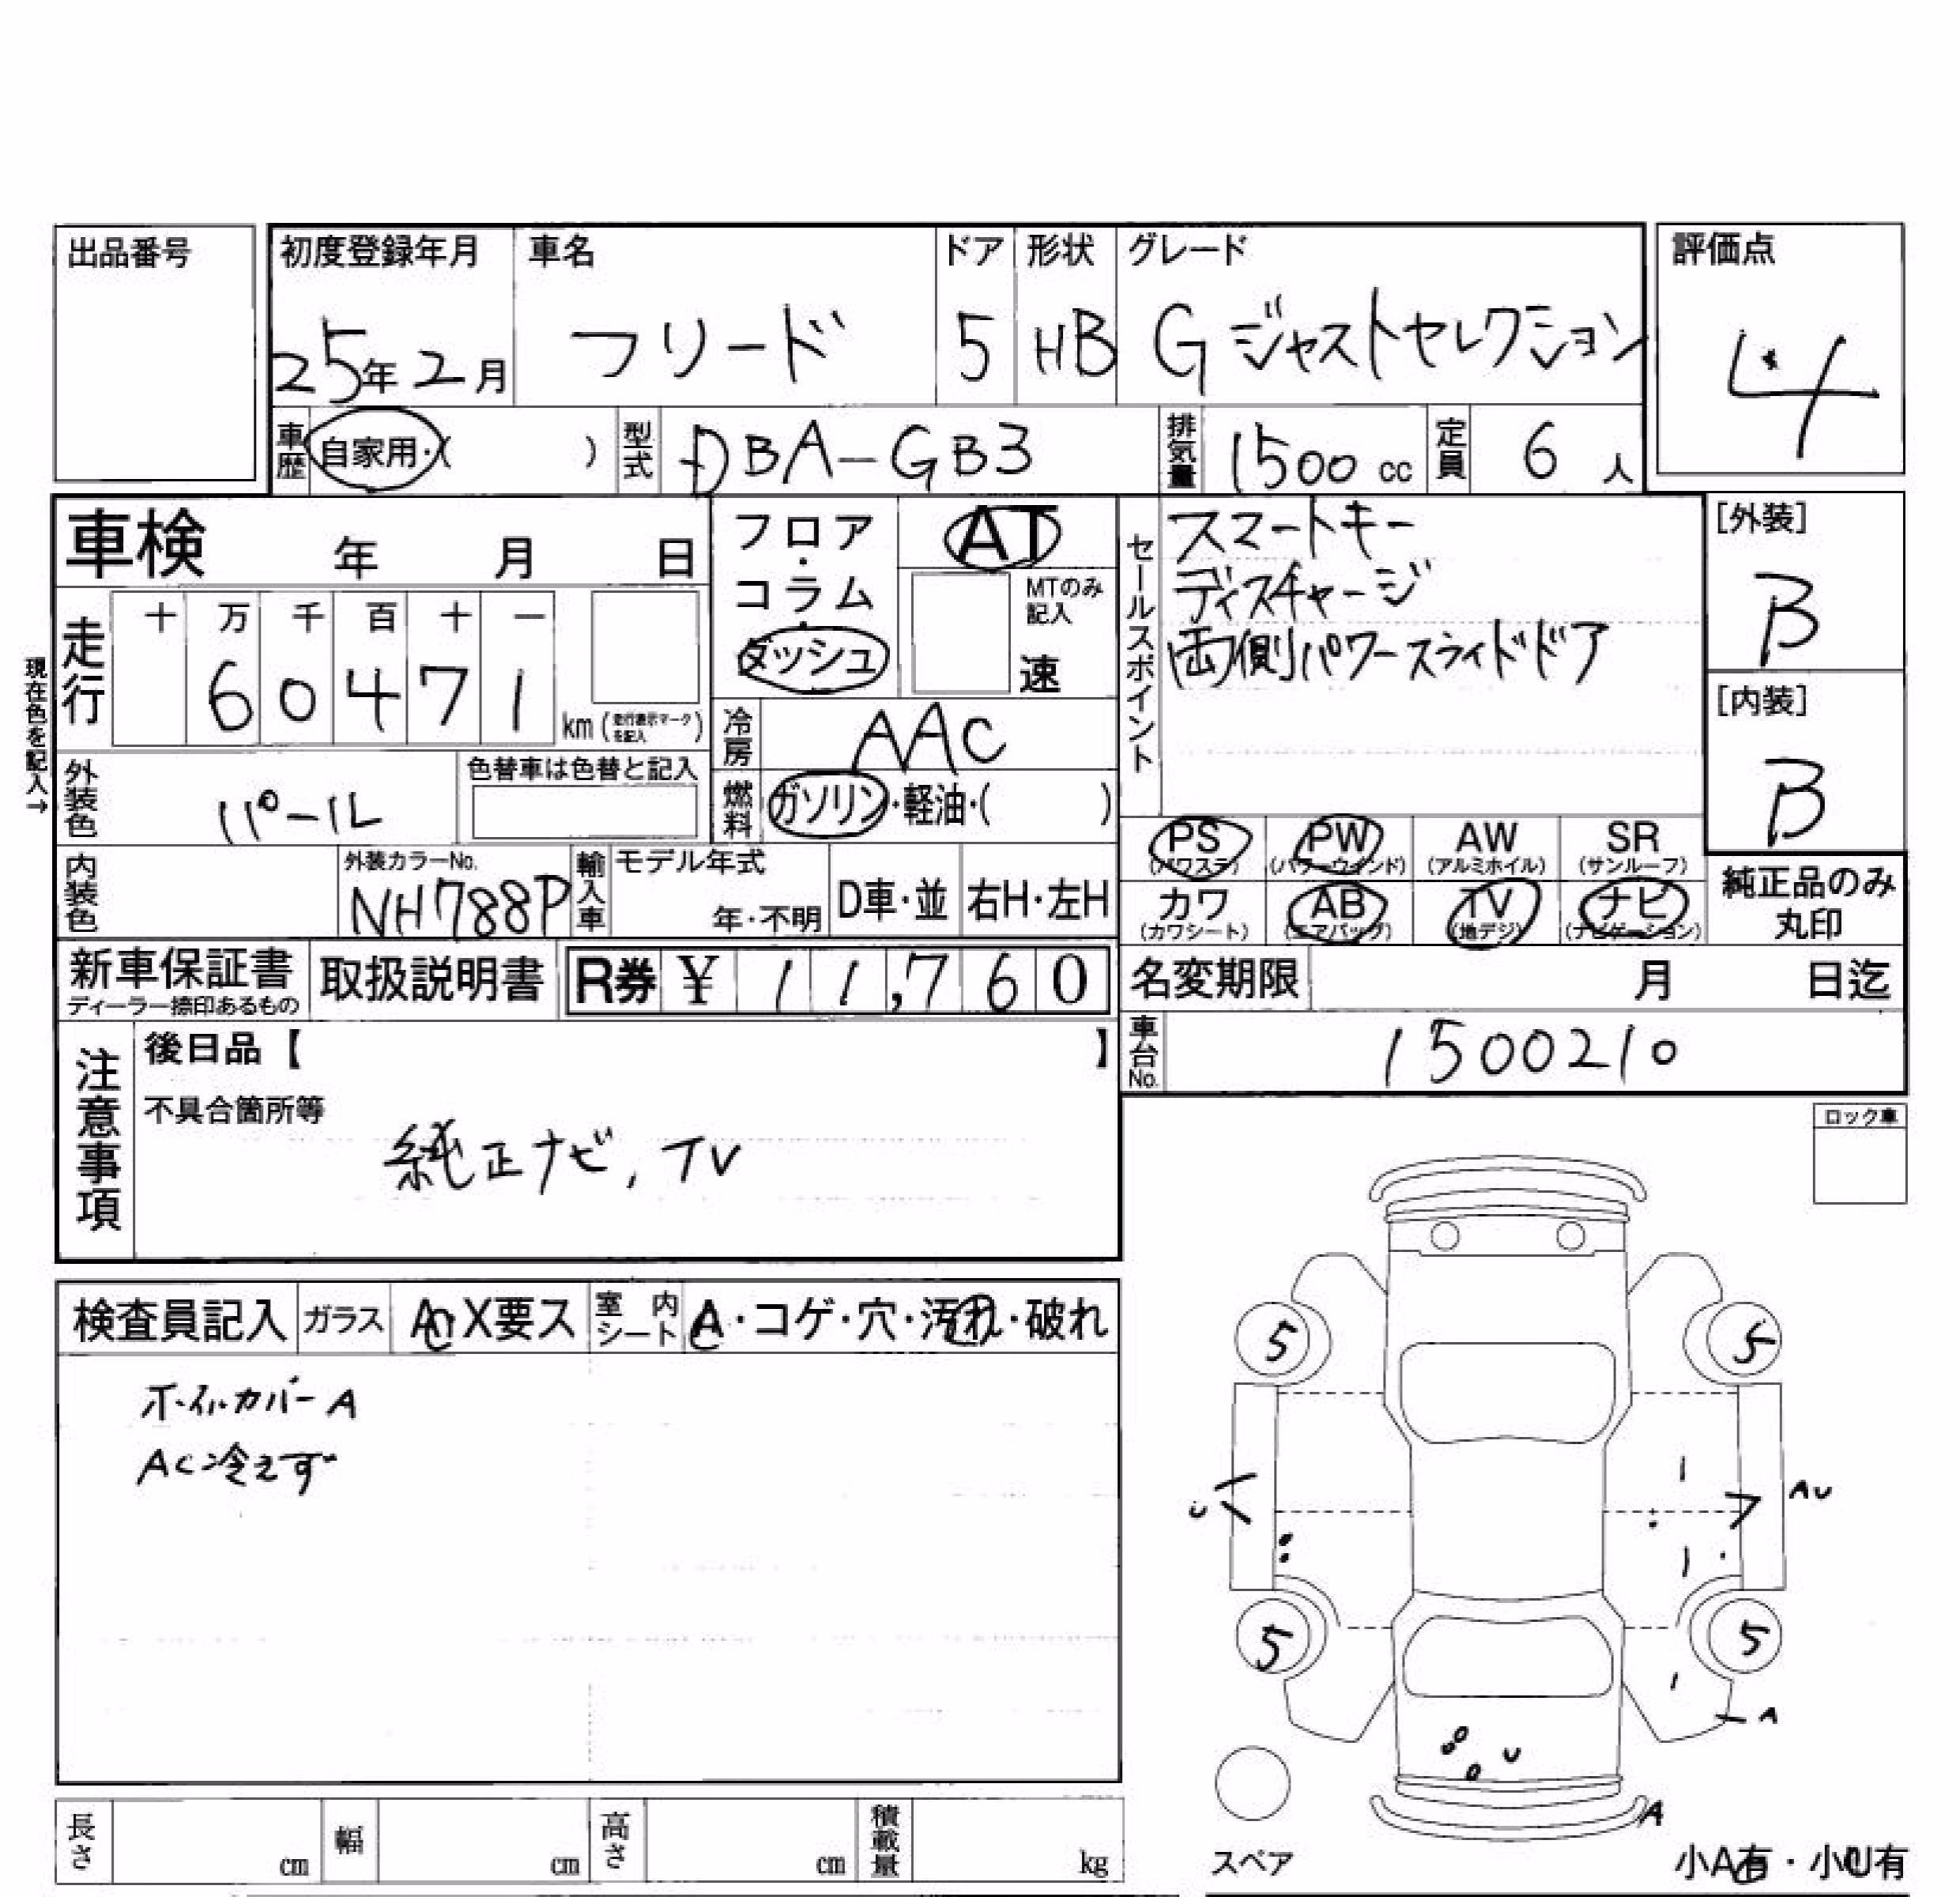 出品番号
初度登録年月 車名 ドア 形状 グレード 評価点
25年2月 フリード 5 HB Gジャストセレクション 4
車歴 自家用・( ) 型式 DBA-GB3 排気量 1500cc 定員 6人
車検 年 月 日
フロア・コラム・ダッシュ
AT
MTのみ記入
速
セールスポイント
スマートキー
ディスチャージ
両側パワースライドドア
[外装]
B
[内装]
B
現在色を記入→
走行 十 万 千 百 十 一
60471 km (走行表示マークを記入)
冷房 AAC
燃料 ガソリン・軽油・( )
外装色 パール 色替車は色替と記入
PS PW AW SR
(パワステ) (パワーウインド) (アルミホイル) (サンルーフ)
カワ AB TV ナビ
(カワシート) (エアバッグ) (地デジ) (ナビゲーション)
純正品のみ
丸印
内装色 外装カラーNo. NH788P 輸入車 モデル年式 年・不明 D車・並 右H・左H
新車保証書 取扱説明書 R券 ¥11,760
ディーラー捺印あるもの
名変期限 月 日迄
車台No. 1500210
注意事項
後日品【 】
不具合箇所等
純正ナビ, TV
ロック車
検査員記入 ガラス A・X要ス 室内シート A・コゲ・穴・汚れ・破れ
ホイルカバーA
AC冷えず
5 5
U AU
5 5
A
U
A
スペア
小A有・小U有
長さ cm 幅 cm 高さ cm 積載量 kg